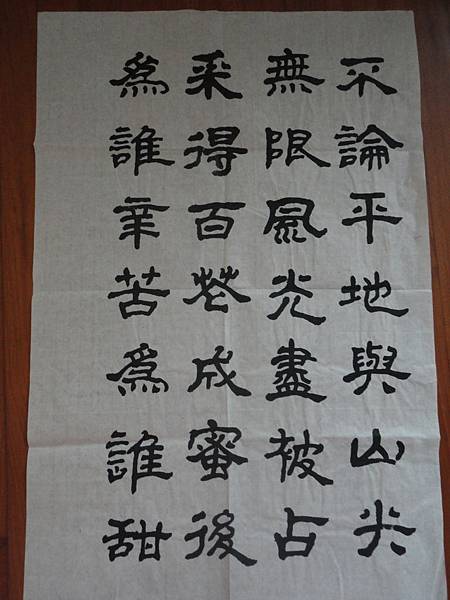 不論平地與山尖
無限風光盡被占
采得百花成蜜後
為誰辛苦為誰甜